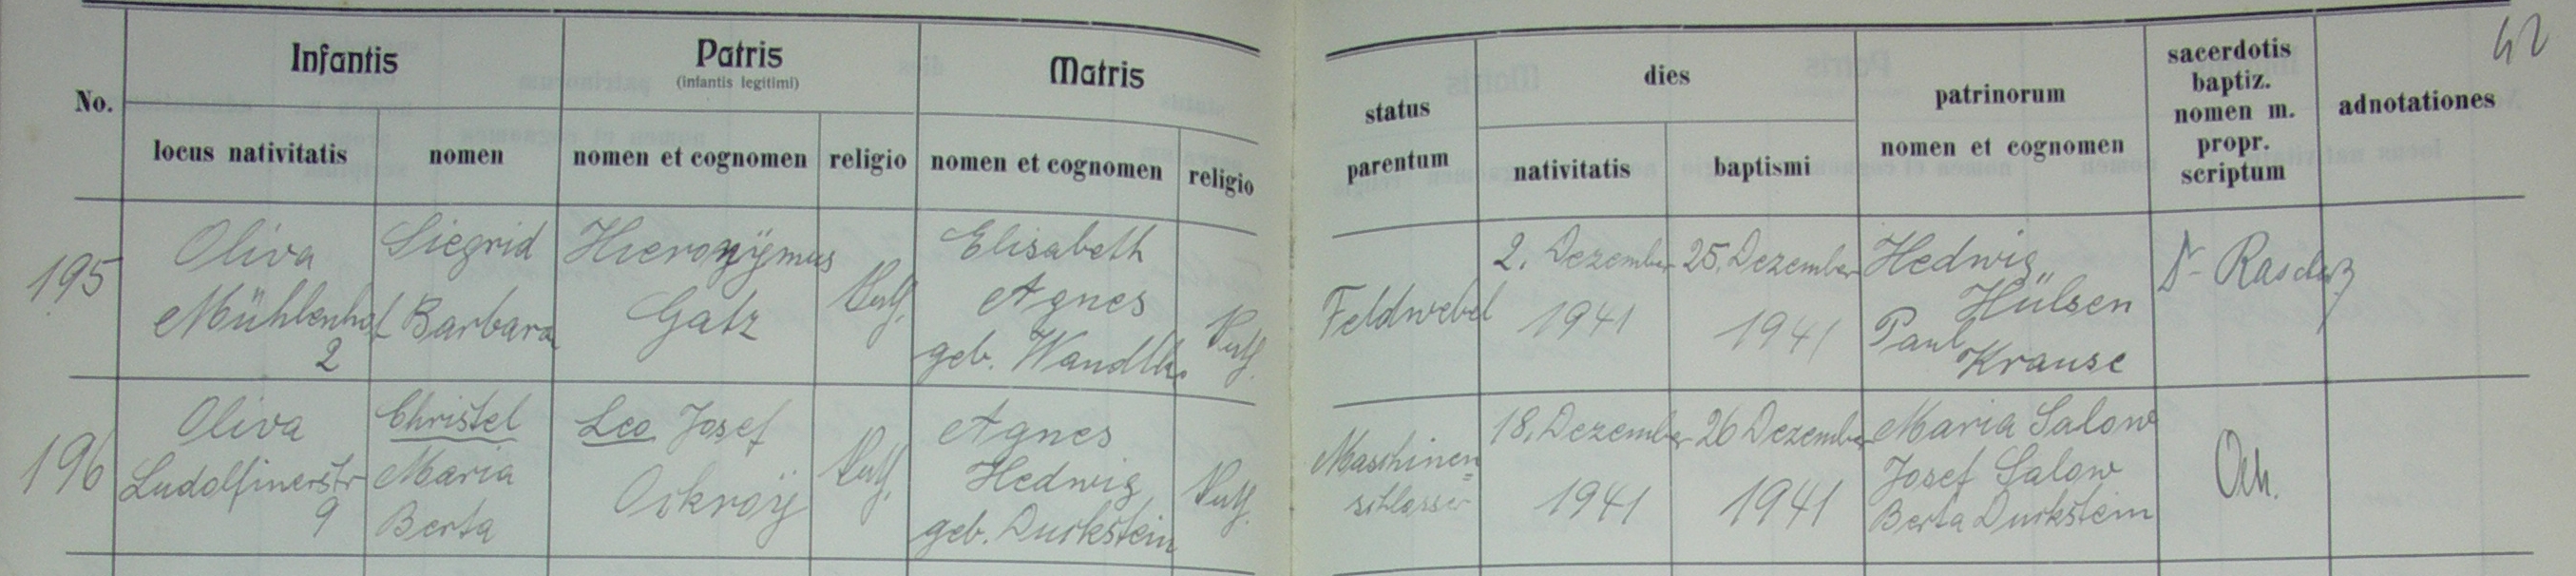 42
No.
Infantis
locus nativitatis
nomen
Patris
(infantis legitimi)
nomen et cognomen
religio
Matris
nomen et cognomen
religio
status
parentum
dies
nativitatis
baptismi
patrinorum
nomen et cognomen
sacerdotis
baptiz.
nomen m.
propr.
scriptum
adnotationes
195
Oliva
Mühlenhof
2
Siegrid
Barbara
Hieronÿmus
Gatz
Kath.
Elisabeth
Agnes
geb.
Kath.
Feldwebel
2. Dezember
1941
25. Dezember
1941
Hedwig
Hülsen
Paul
Krause
196
Oliva
Ludolfinerstr
9
Christel
Maria
Berta
Leo Josef
Kath.
Agnes
Hedwig
geb. Durkstein
Kath.
Maschinen=
schlosser
18. Dezember
1941
26 Dezember
1941
Maria Salow
Josef Salow
Berta Durkstein